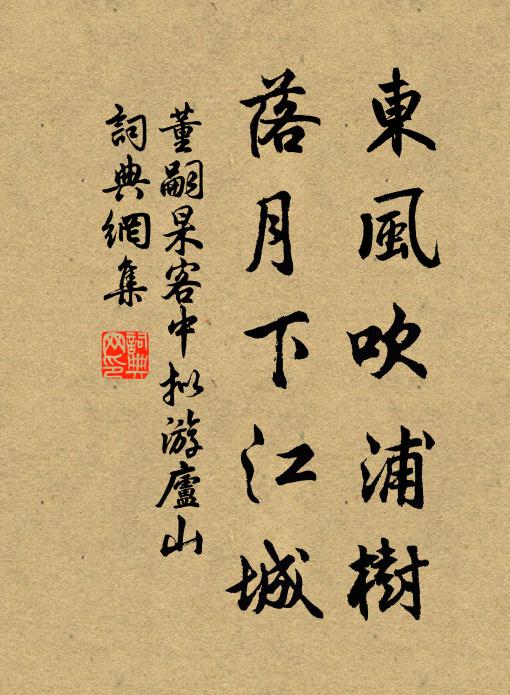 東風吹浦樹
落月下江城
董嗣杲客中拟游廬山
詞典網集
詞典網印